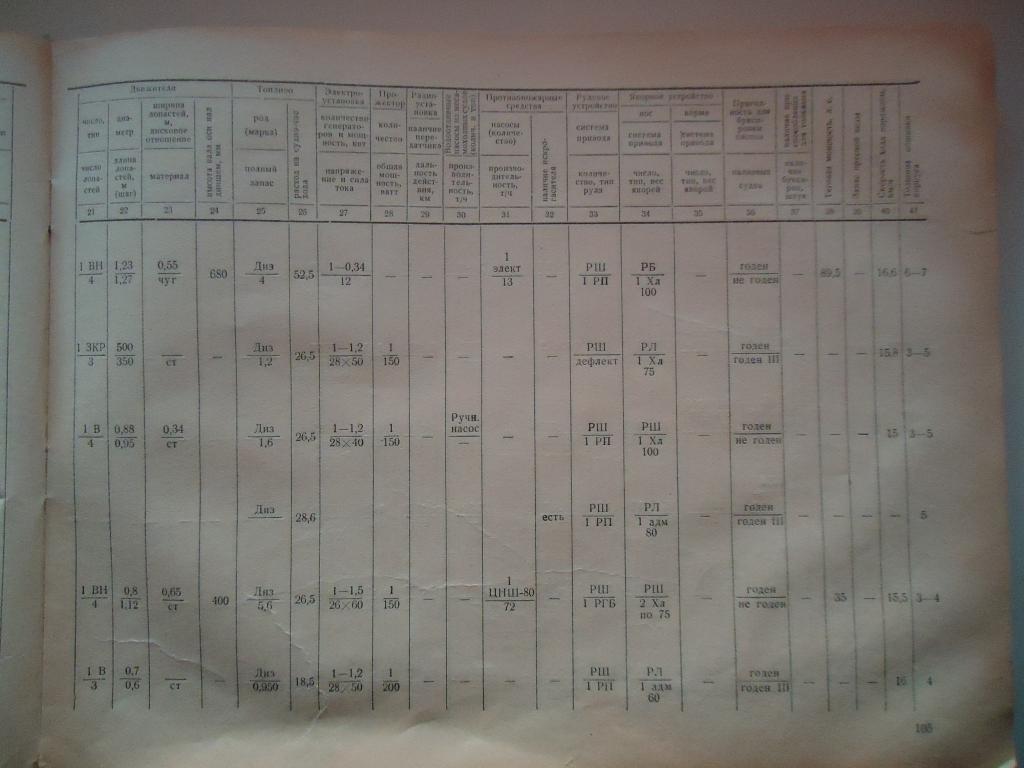 Движители
Топливо
Электро-
установка
Про-
жектор
Радио-
уста-
новка
Противопожарные
средства
Рулевое
устройство
Якорное устройство
число,
тип
диа-
метр
ширина
лопастей,
м,
дисковое
отношение
род
(марка)
количество
генерато-
ров и мощ-
ность, квт
коли-
чество
наличие
пере-
датчика
насосы
(количе-
ство)
система
привода
нос
система
привода
корма
система
привода
число
лопа-
стей
длина
лопа-
стей,
м
(шаг)
материал
полный
запас
напряже-
ние и сила
тока
общая
мощ-
ность,
ватт
даль-
ность
дейст-
вия,
км
произ-
води-
тель-
ность,
т/ч
производи-
тель-
ность,
т/ч
наличие искро-
гасителя
количе-
ство, тип
руля
число,
тип, вес
якорей
число,
тип, вес
якорей
21 22 23 24 25 26 27 28 29 30 31 32 33 34 35 36 37 38 39 40 41
1 ВН 1,23 0,55 680 Диз 52,5 1—0,34 — — — 1 — РШ РБ — годен — 89,5 — 16,6 6—7
4 1,27 чуг 4 12 элект 1 РП 1 Хл не годен
13 100
1 ЗКР 500 — — Диз 26,5 1—1,2 1 — — — — РШ РЛ — годен — — — 15,8 3—5
3 350 ст 1,2 28×50 150 дефлект 1 Хл годен III
75
1 В 0,88 0,34 — Диз 26,5 1—1,2 1 — Ручн. — — РШ РШ — годен — — — 15 3—5
4 0,95 ст 1,6 28×40 150 насос 1 РП 1 Хл не годен
— 100
Диз 28,6 есть РШ РЛ — годен — — — 5
1 РП 1 адм годен III
80
1 ВН 0,8 0,65 400 Диз 26,5 1—1,5 1 — — 1 — РШ РШ — годен — 35 — 15,5 3—4
4 1,12 ст 5,6 26×60 150 ЦНШ-80 1 РГБ 2 Хл не годен
72 по 75
1 В 0,7 — — Диз 18,5 1—1,2 1 — — — — РШ РЛ — годен — — — 16 4
3 0,6 ст 0,950 28×50 200 1 РП 1 адм годен III
60